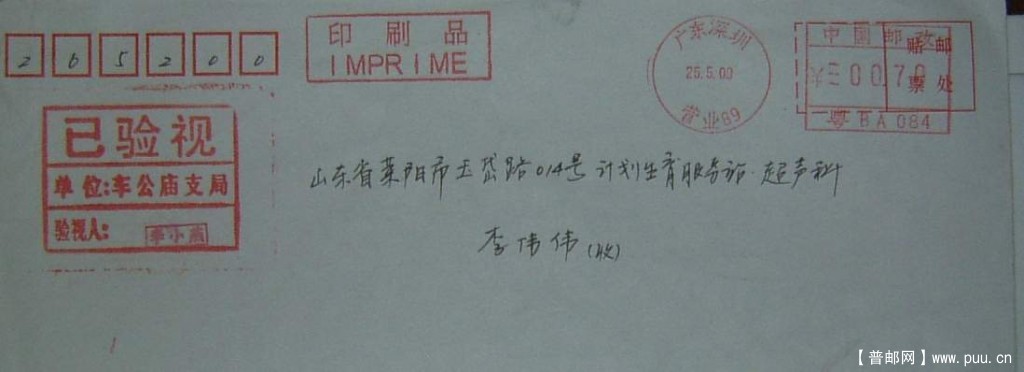 265200
印刷品
IMPRIME
广东深圳
25.5.09
营业89
中国邮政
贴邮
票处
¥=00.70
粤BA084
已验视
单位:车公庙支局
验视人:
山东省莱阳市玉岱路014号 计划生育服务站·超声科
李伟伟(收)
【普邮网】www.puu.cn